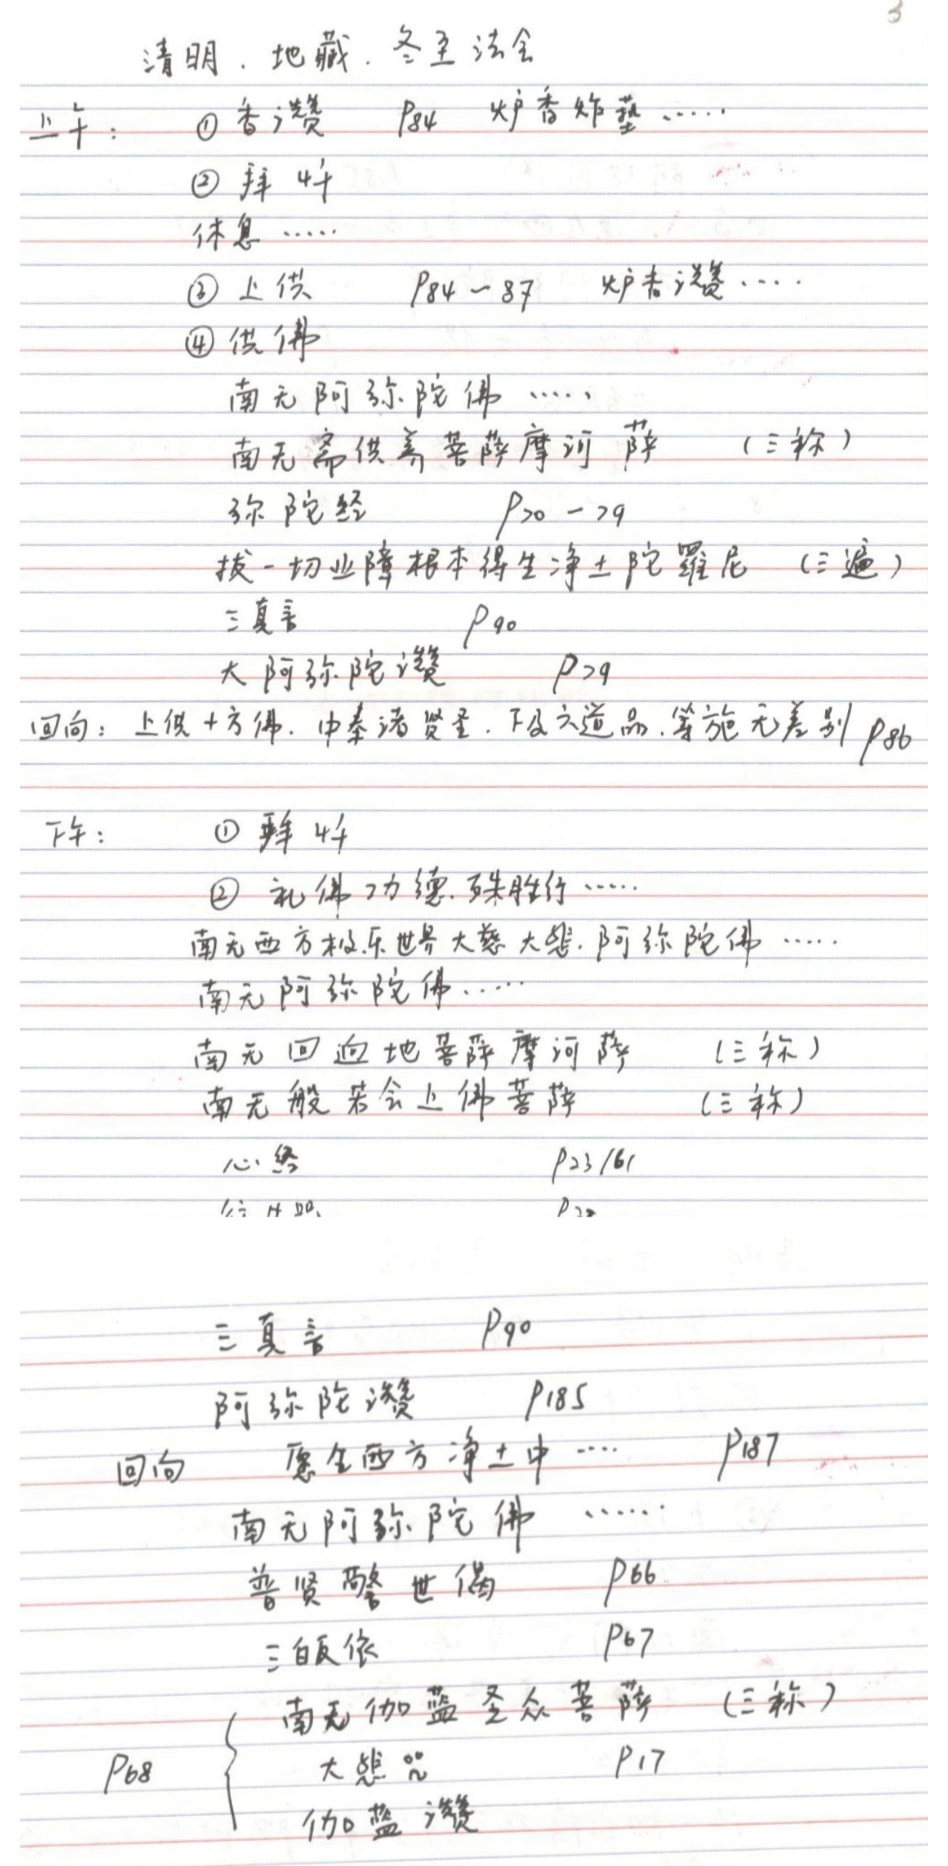 3
清明．地藏．冬至法会
上午： ① 香讚 P84 炉香炸爇……
② 拜忏
休息……
③ 上供 P84－87 炉香讚……
④ 供佛
南无阿弥陀佛……
南无斋供养菩萨摩诃萨 （三称）
弥陀经 P20－29
拔一切业障根本得生净土陀羅尼 （三遍）
三真言 P90
大阿弥陀讚 P29
回向：上供十方佛．中奉诸贤圣．下及六道品．等施无差别 P86
下午： ① 拜忏
② 礼佛功德．殊胜行……
南无西方极乐世界大慈大悲．阿弥陀佛……
南无阿弥陀佛……
南无回向地菩萨摩诃萨 （三称）
南无般若会上佛菩萨 （三称）
心经 P23/61
三真言 P90
阿弥陀讚 P185
回向 愿生西方净土中…… P187
南无阿弥陀佛……
普贤警世偈 P66
三皈依 P67
南无伽蓝圣众菩萨 （三称）
P68 大悲咒 P17
伽蓝讚